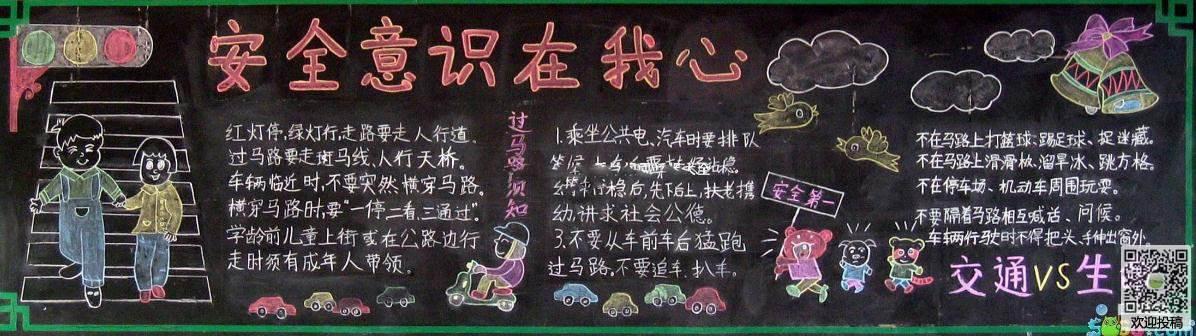 安全意识在我心
红灯停,绿灯行,走路要走人行道.
过马路要走斑马线、人行天桥。
车辆临近时,不要突然横穿马路。
横穿马路时,要“一停二看三通过”.
学龄前儿童上街或在公路边行
走时须有成年人带领。
过马路须知
1.乘坐公共电、汽车时要排队
等候
稳后,先下后上,扶老携
幼,讲求社会公德。
3.不要从车前车后猛跑
过马路.不要追车.扒车。
安全第一
不在马路上打篮球、踢足球、捉迷藏。
不在马路上滑滑板、溜旱冰、跳方格。
不在停车场、机动车周围玩耍。
不要隔着马路相互喊话、问候。
车辆行驶时不得把头、手伸出窗外.
交通VS生
欢迎投稿